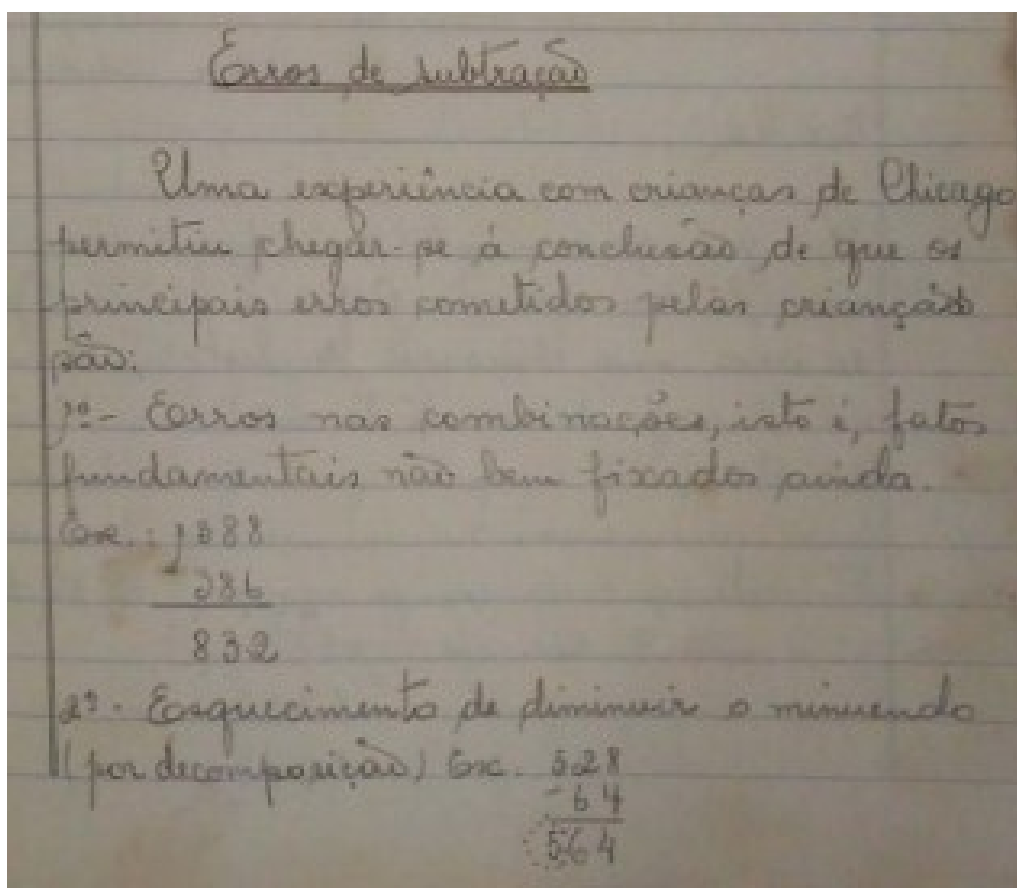 Erros de subtração
Uma experiência com crianças de Chicago
permitiu chegar-se à conclusão de que os
principais erros cometidos pelas crianças
são:
1º - Erros nas combinações, isto é, fatos
fundamentais não bem fixados ainda.
Ex.:
286
832
2º - Esquecimento de diminuir o minuendo
(por decomposição) Ex. 528
- 64
564